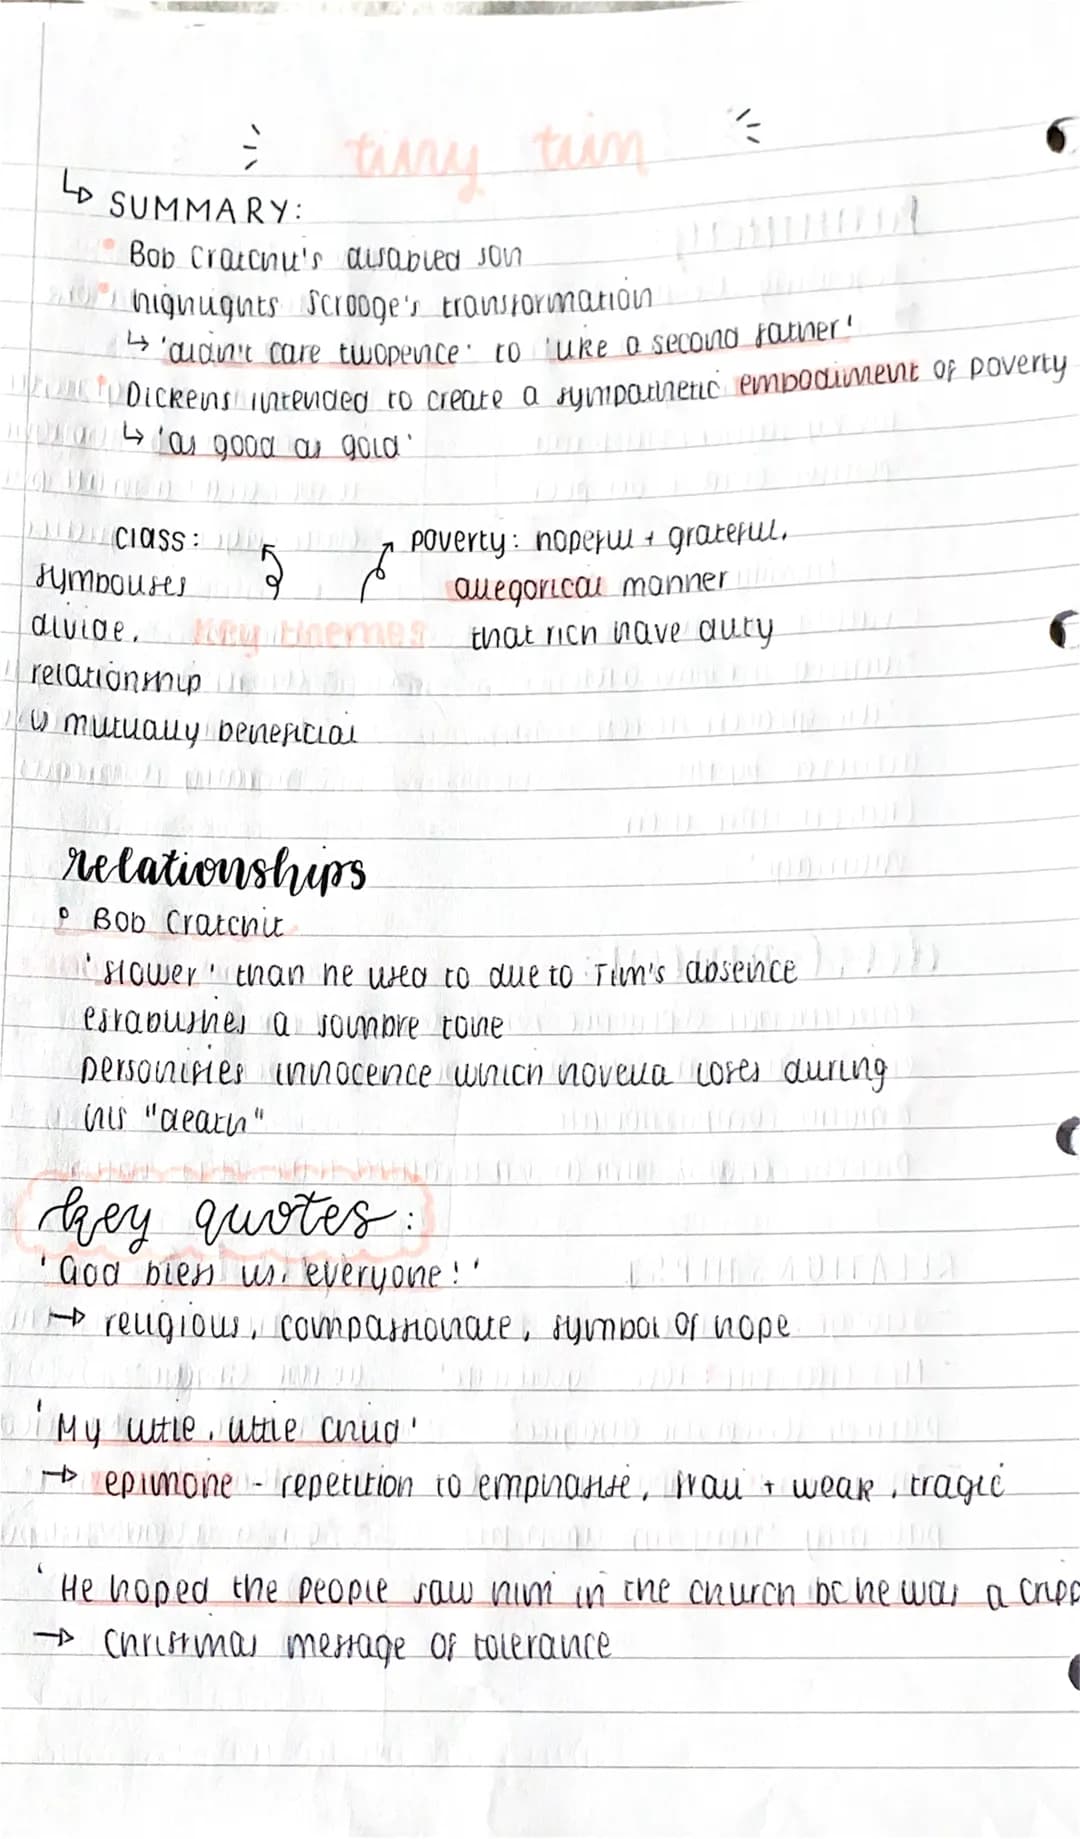 tiny tim
↳ SUMMARY:
• Bob Cratchit's disabled son
• highlights Scrooge's transformation
↳ 'didn't care twopence' to 'like a second father'
• Dickens intended to create a sympathetic embodiment of poverty
↳ 'as good as gold'
class:
symbolises
divide.
relationship
is mutually beneficial
key themes
poverty: hopeful + grateful.
allegorical manner
that rich have duty
relationships
• Bob Cratchit
'slower' than he used to due to Tim's absence
establishes a sombre tone
personifies innocence which novella loses during
his "death"
key quotes:
'God bless us, everyone!'
→ religious, compassionate, symbol of hope
'My little, little child'
→ epimone - repetition to emphasise, frail + weak, tragic
'He hoped the people saw him in the church bc he was a cripp
→ Christmas message of tolerance